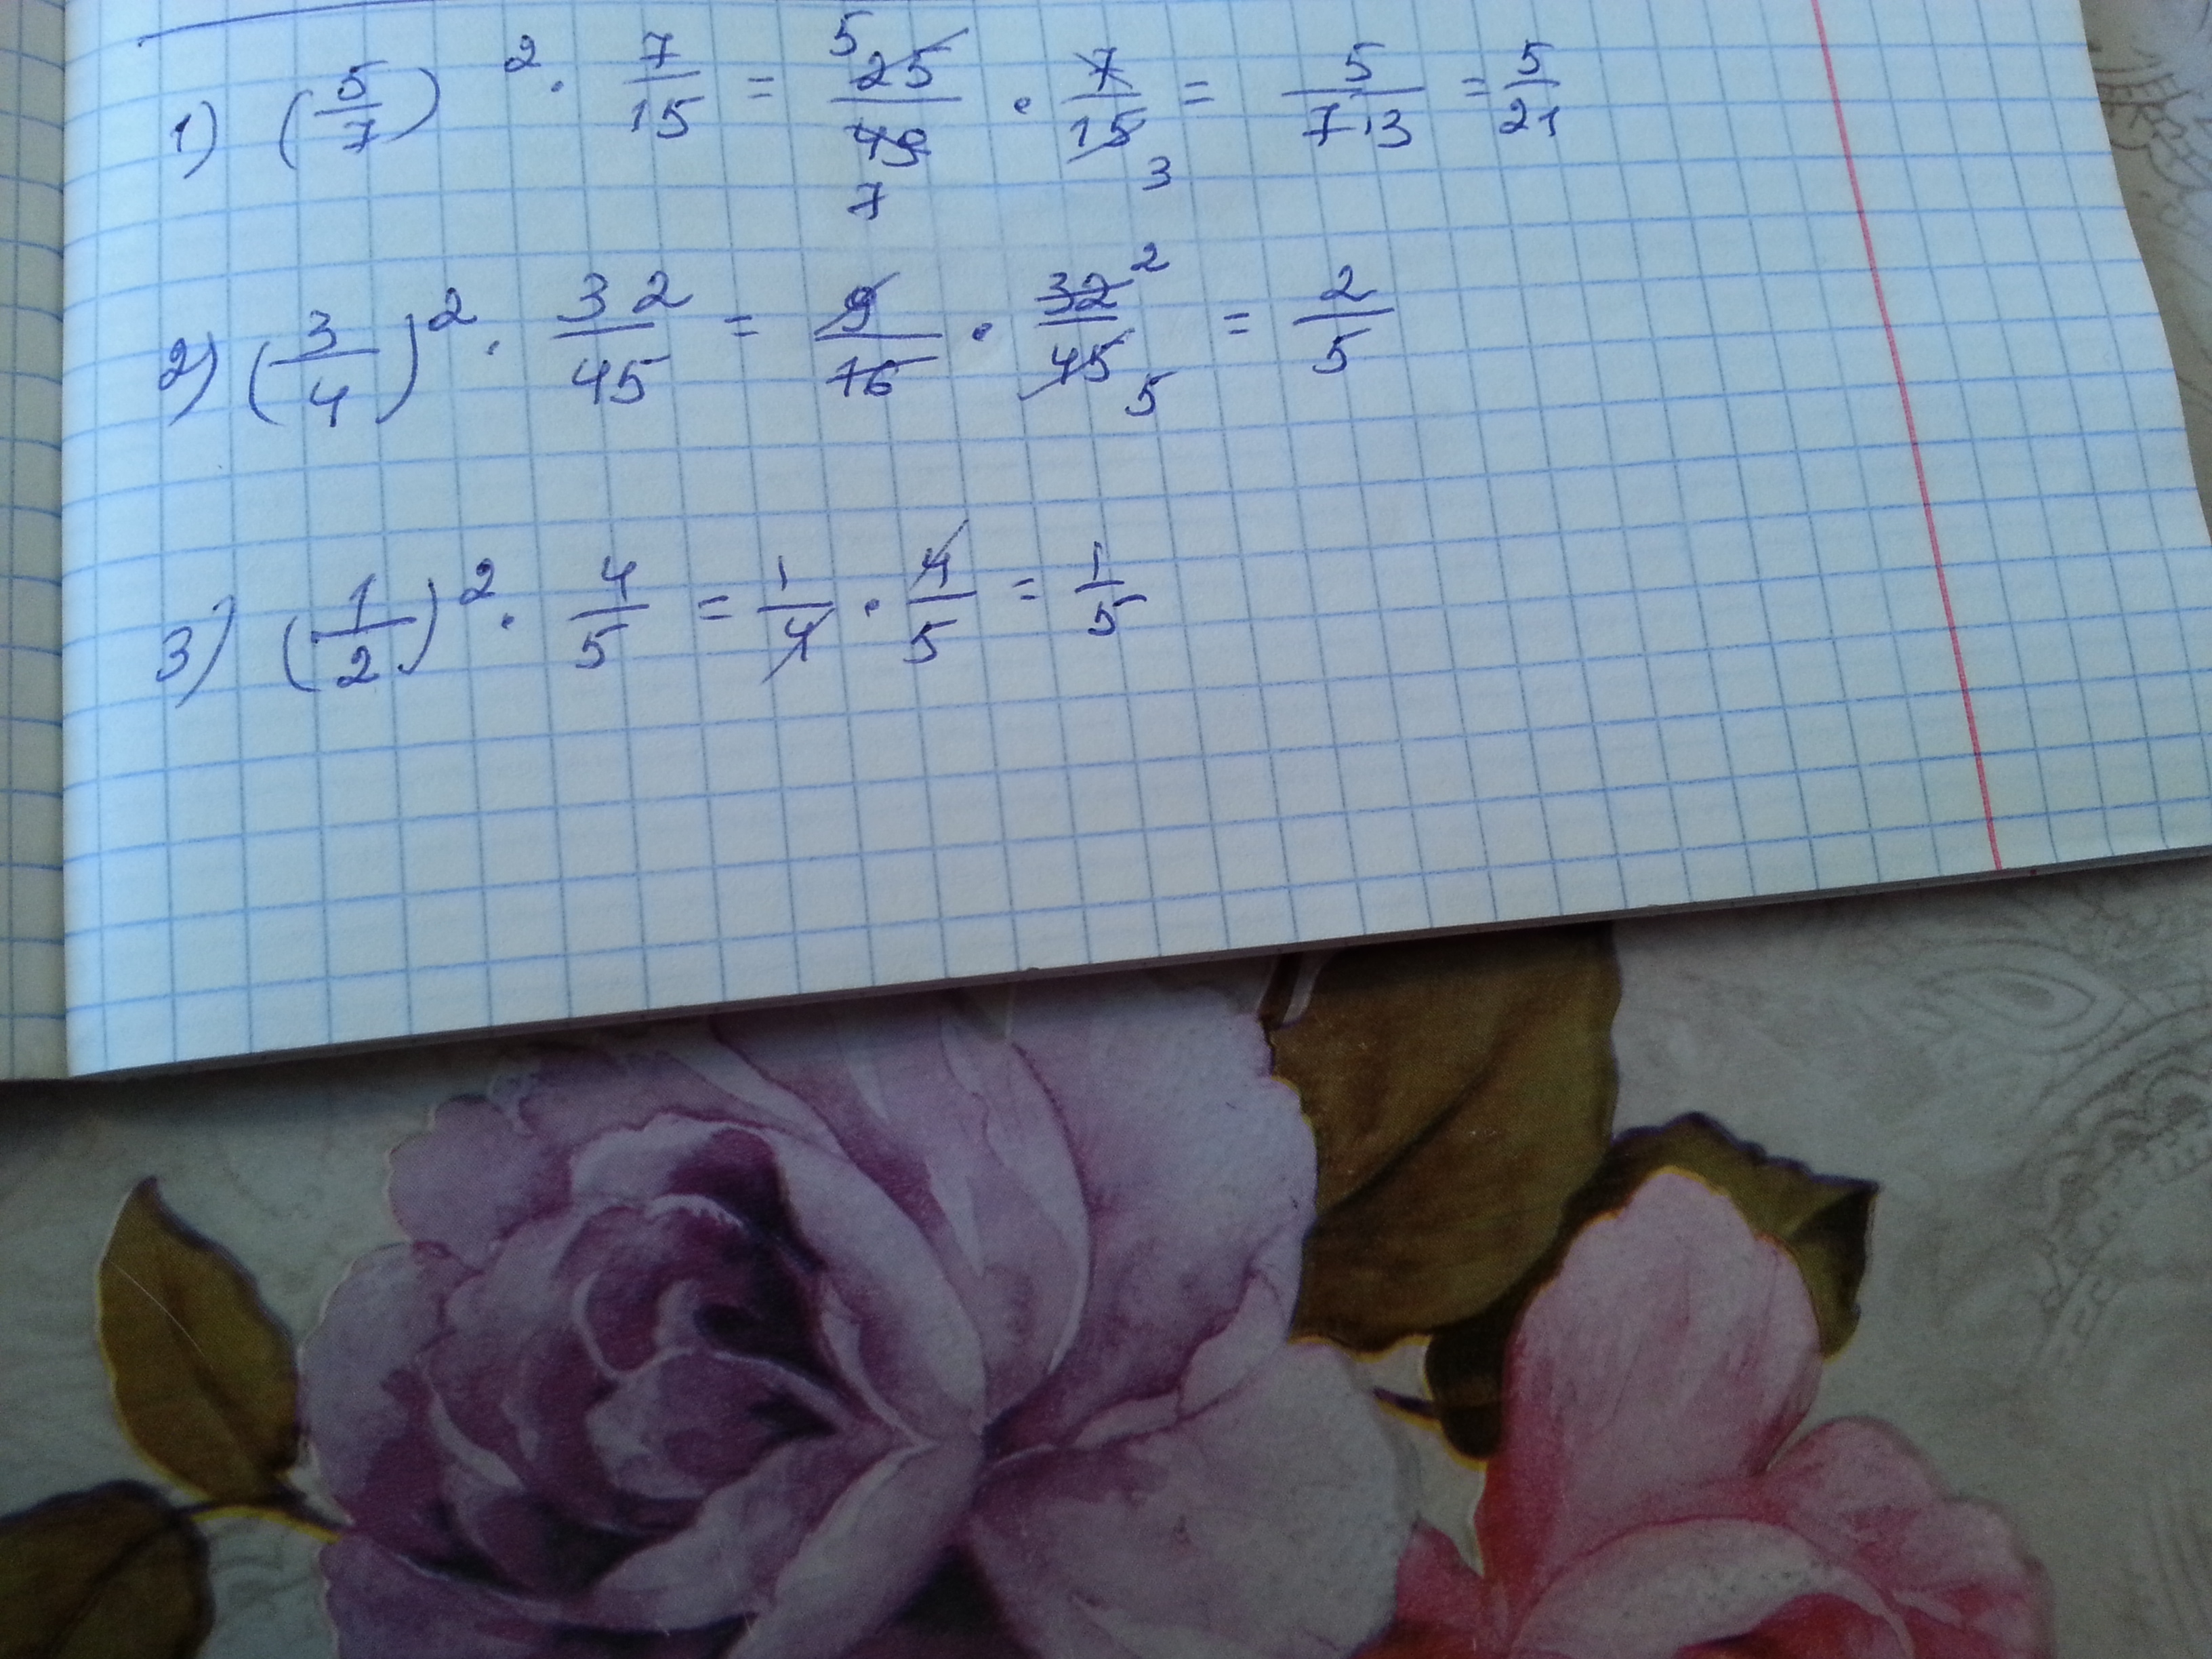 1) (5/7)² · 7/15 = 25/49 · 7/15 = 5/7·3 = 5/21
2) (3/4)² · 32/45 = 9/16 · 32/45 = 2/5
3) (1/2)² · 4/5 = 1/4 · 4/5 = 1/5